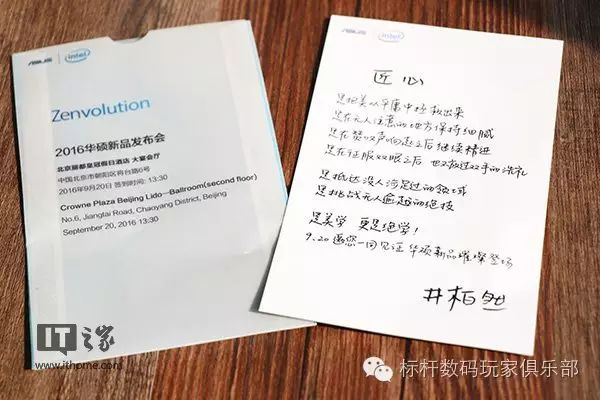 ASUS intel
Zenvolution
2016华硕新品发布会
北京丽都皇冠假日酒店 大宴会厅
中国北京市朝阳区将台路6号
2016年9月20日 签到时间: 13:30
Crowne Plaza Beijing Lido—Ballroom(second floor)
No.6, Jiangtai Road, Chaoyang District, Beijing
September 20, 2016 13:30
ASUS intel
匠心
是把美从平庸中拯救出来
是在无人注意的地方保持细腻
是在赞叹声响起之后继续精进
是在征服双眼之后 也不放过双手的洗礼
是抵达没人涉足过的领域
是挑战无人逾越的绝技
是美学 更是绝学!
9.20邀您一同见证华硕新品璀璨登场
井柏然
IT之家
www.ithome.com
标杆数码玩家俱乐部